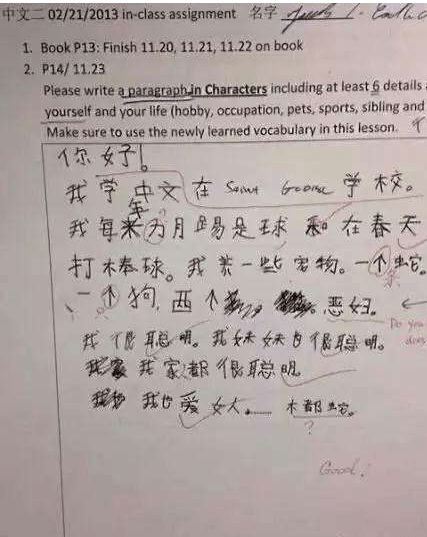 中文二 02/21/2013 in-class assignment 名字
1. Book P13: Finish 11.20, 11.21, 11.22 on book
2. P14/ 11.23
Please write a paragraph in Characters including at least 6 details
yourself and your life (hobby, occupation, pets, sports, sibling and
Make sure to use the newly learned vocabulary in this lesson.
你好！
我学中文在 Saint George 学校。
我每年 月踢足球 和 在春天
打棒球。我养一些宠物。一个蛇。
一个狗，西个 。恶妇。
Do you
does
我很聪明。我妹妹也很聪明。
我家都很聪明。
我也爱女人…… 木都蛇。
?
Good!